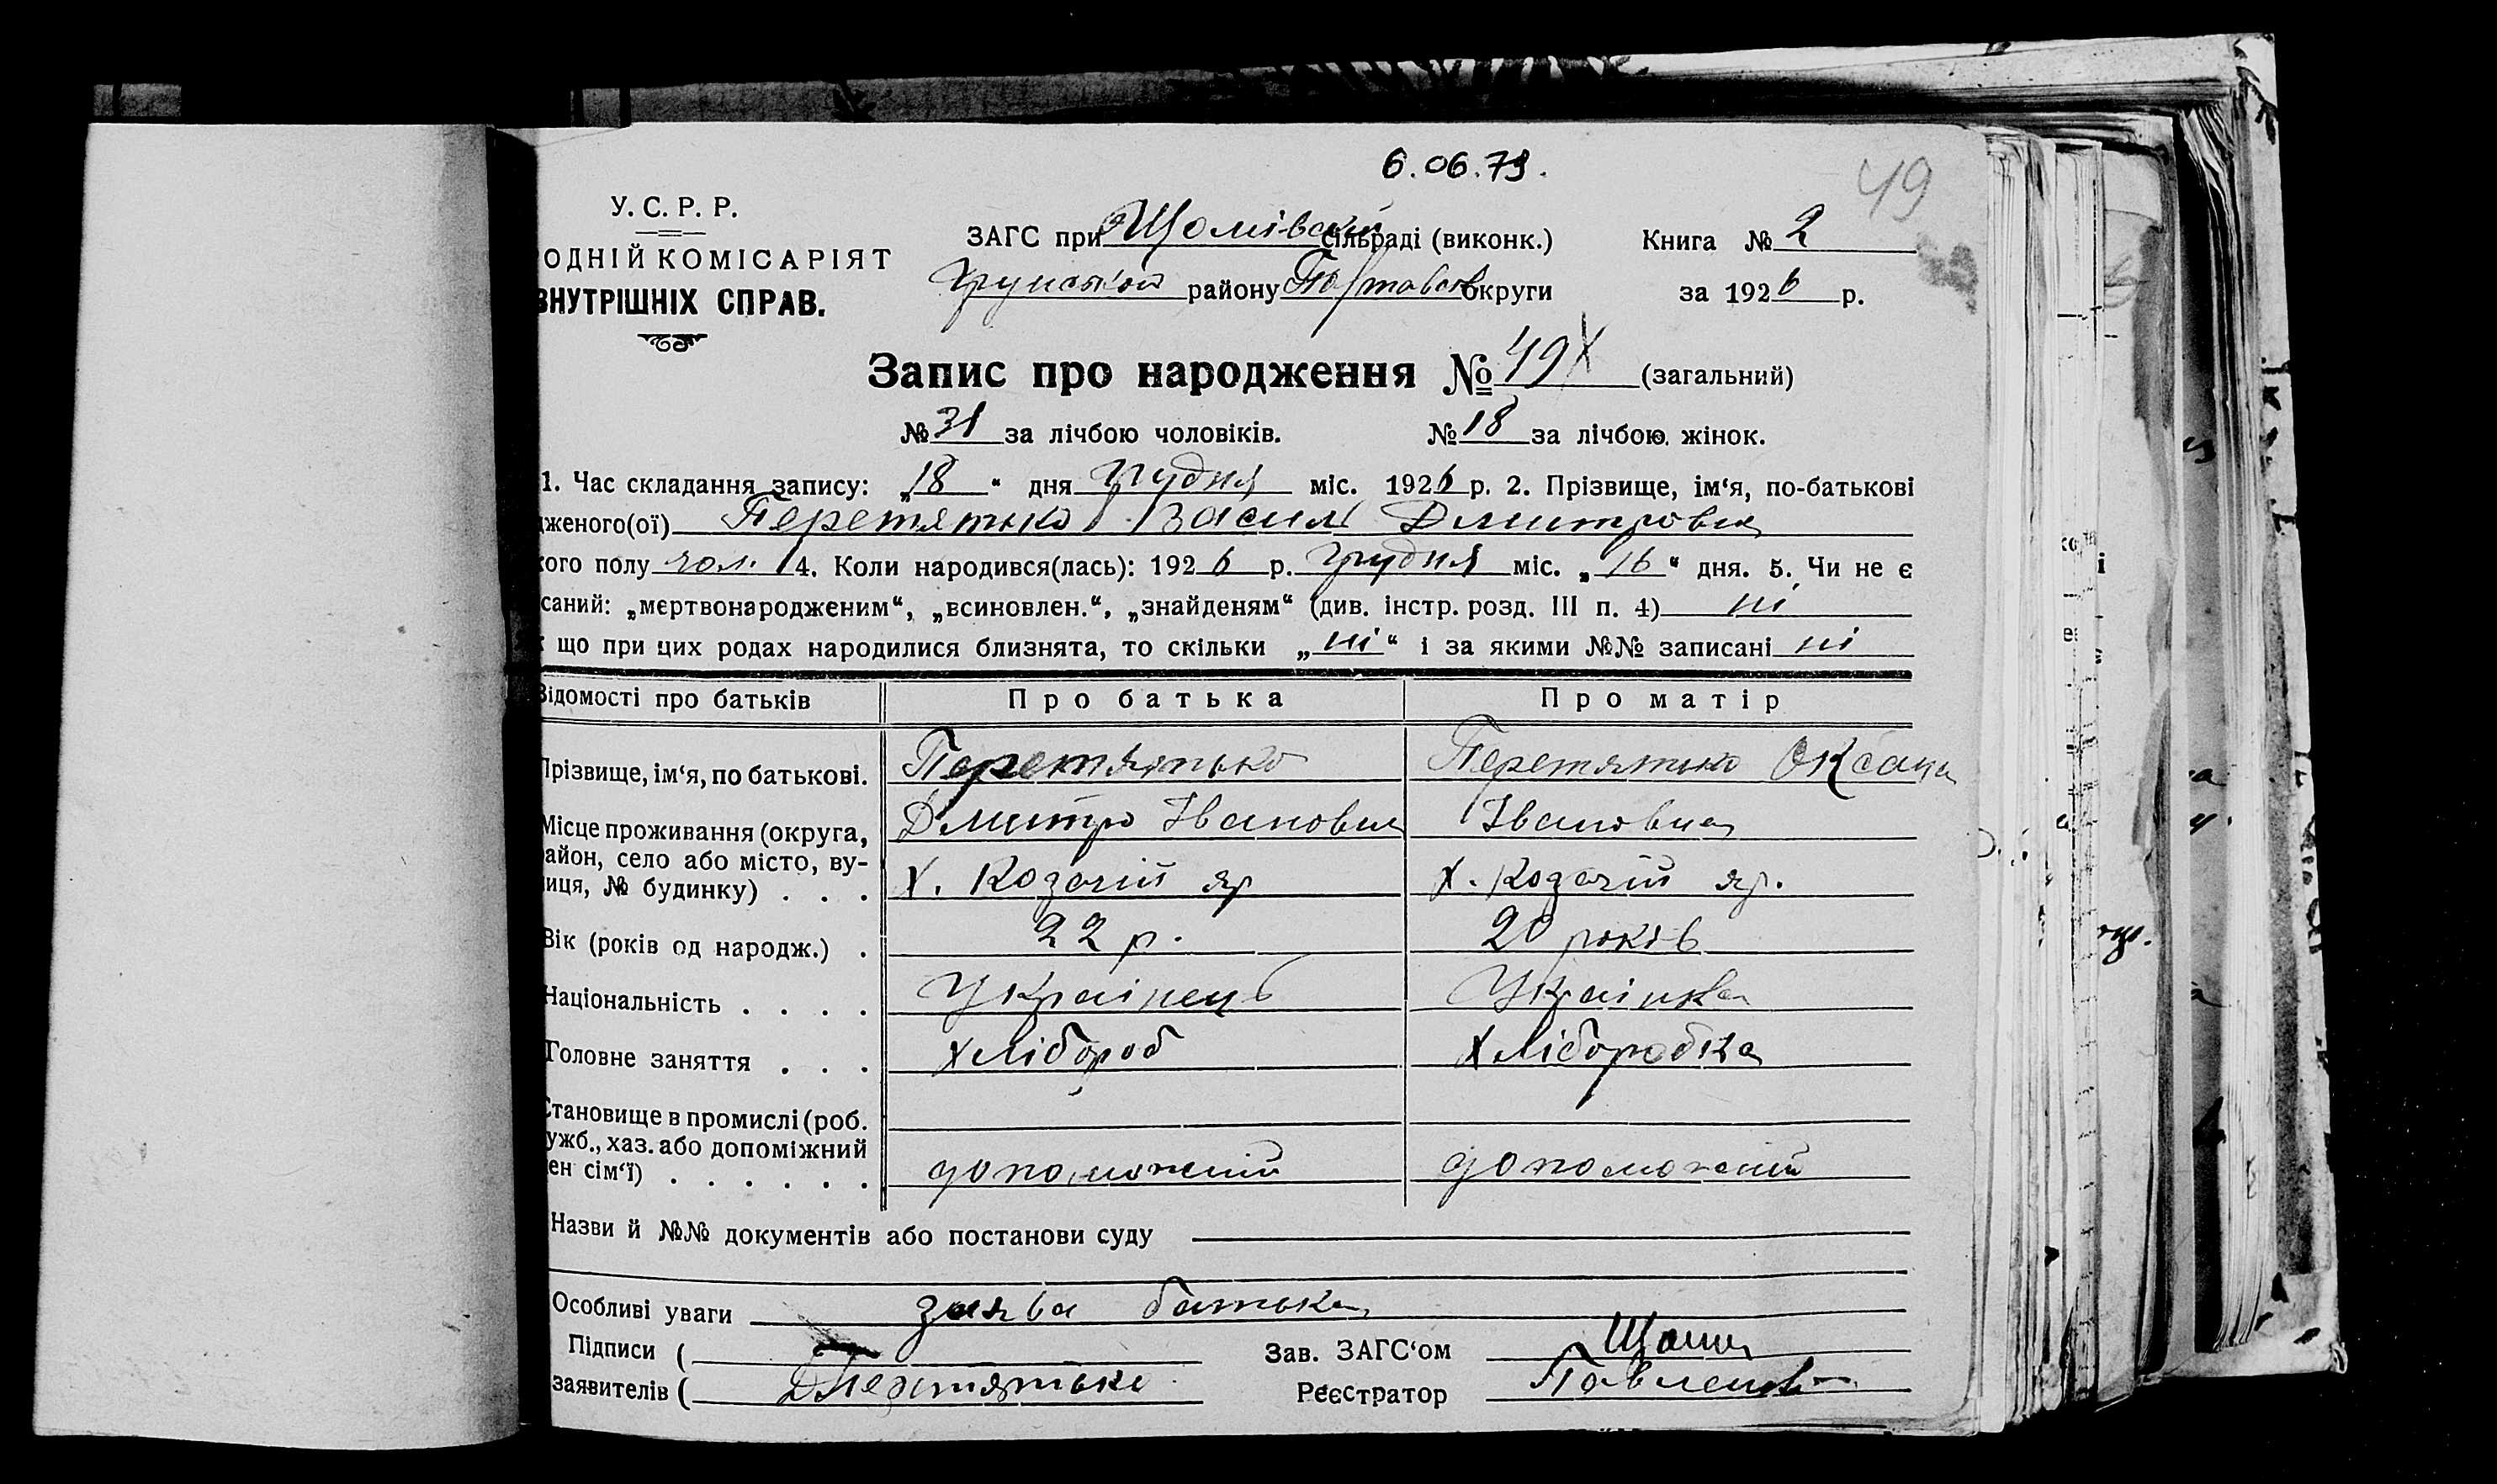 6.06.79.
49
У. С. Р. Р.
ОДНІЙ КОМІСАРІЯТ
ВНУТРІШНІХ СПРАВ.
ЗАГС при Щомівській сільраді (виконк.)
Грунський району Полтавськ округи
Книга № 2
за 1926 р.
Запис про народження № 49 (загальний)
№ 31 за лічбою чоловіків. № 18 за лічбою жінок.
1. Час складання запису: „18“ дня грудня міс. 1926 р. 2. Прізвище, ім‘я, по-батькові
дженого(ої) Перетятько Василь Дмитрович
кого полу чол. 4. Коли народився(лась): 1926 р. грудня міс. „16“ дня. 5. Чи не є
саний: „мертвонародженим“, „всиновлен.“, „знайденям“ (див. інстр. розд. III п. 4) ні
що при цих родах народилися близнята, то скільки „ні“ і за якими №№ записані ні
Відомості про батьків Про батька Про матір
Прізвище, ім‘я, по батькові. Перетятько Перетятько Оксана
Дмитро Іванович Івановна
Місце проживання (округа,
район, село або місто, ву-
лиця, № будинку) . . . х. Козачій яр х. Козачій яр.
Вік (років од народж.) . 22 р. 20 років
Національність . . . . Українець Українка
Головне заняття . . . хлібороб хліборобка
Становище в промислі (роб.
ужб., хаз. або допоміжний
ен сім‘ї) . . . . . . допоможній допоможній
Назви й №№ документів або постанови суду
Особливі уваги заява батька
Підписи (
заявителів ( ДПеретятько
Зав. ЗАГС‘ом
Реєстратор Павленко